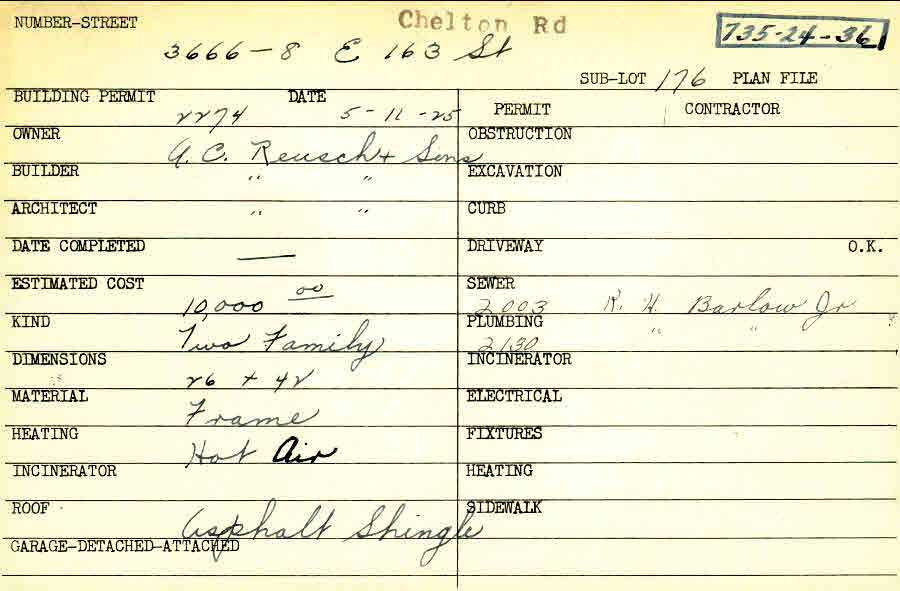 NUMBER-STREET Chelton Rd 735-24-36
3666-8 E 163 St
SUB-LOT 176 PLAN FILE
BUILDING PERMIT DATE PERMIT CONTRACTOR
2274 5-11-25
OWNER OBSTRUCTION
A. C. Reusch + Sons
BUILDER " " EXCAVATION
ARCHITECT " " CURB
DATE COMPLETED — DRIVEWAY O.K.
ESTIMATED COST SEWER
10,000 00 2003 R. H. Barlow Jr
KIND PLUMBING " "
Two Family 2130
DIMENSIONS INCINERATOR
26 + 42
MATERIAL ELECTRICAL
Frame
HEATING FIXTURES
Hot Air
INCINERATOR HEATING
ROOF SIDEWALK
Asphalt Shingle
GARAGE-DETACHED-ATTACHED